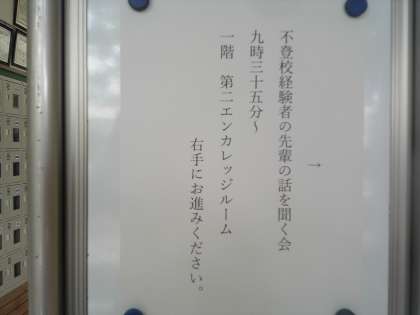 →
不登校経験者の先輩の話を聞く会
九時三十五分~
一階 第二エンカレッジルーム
右手にお進みください。